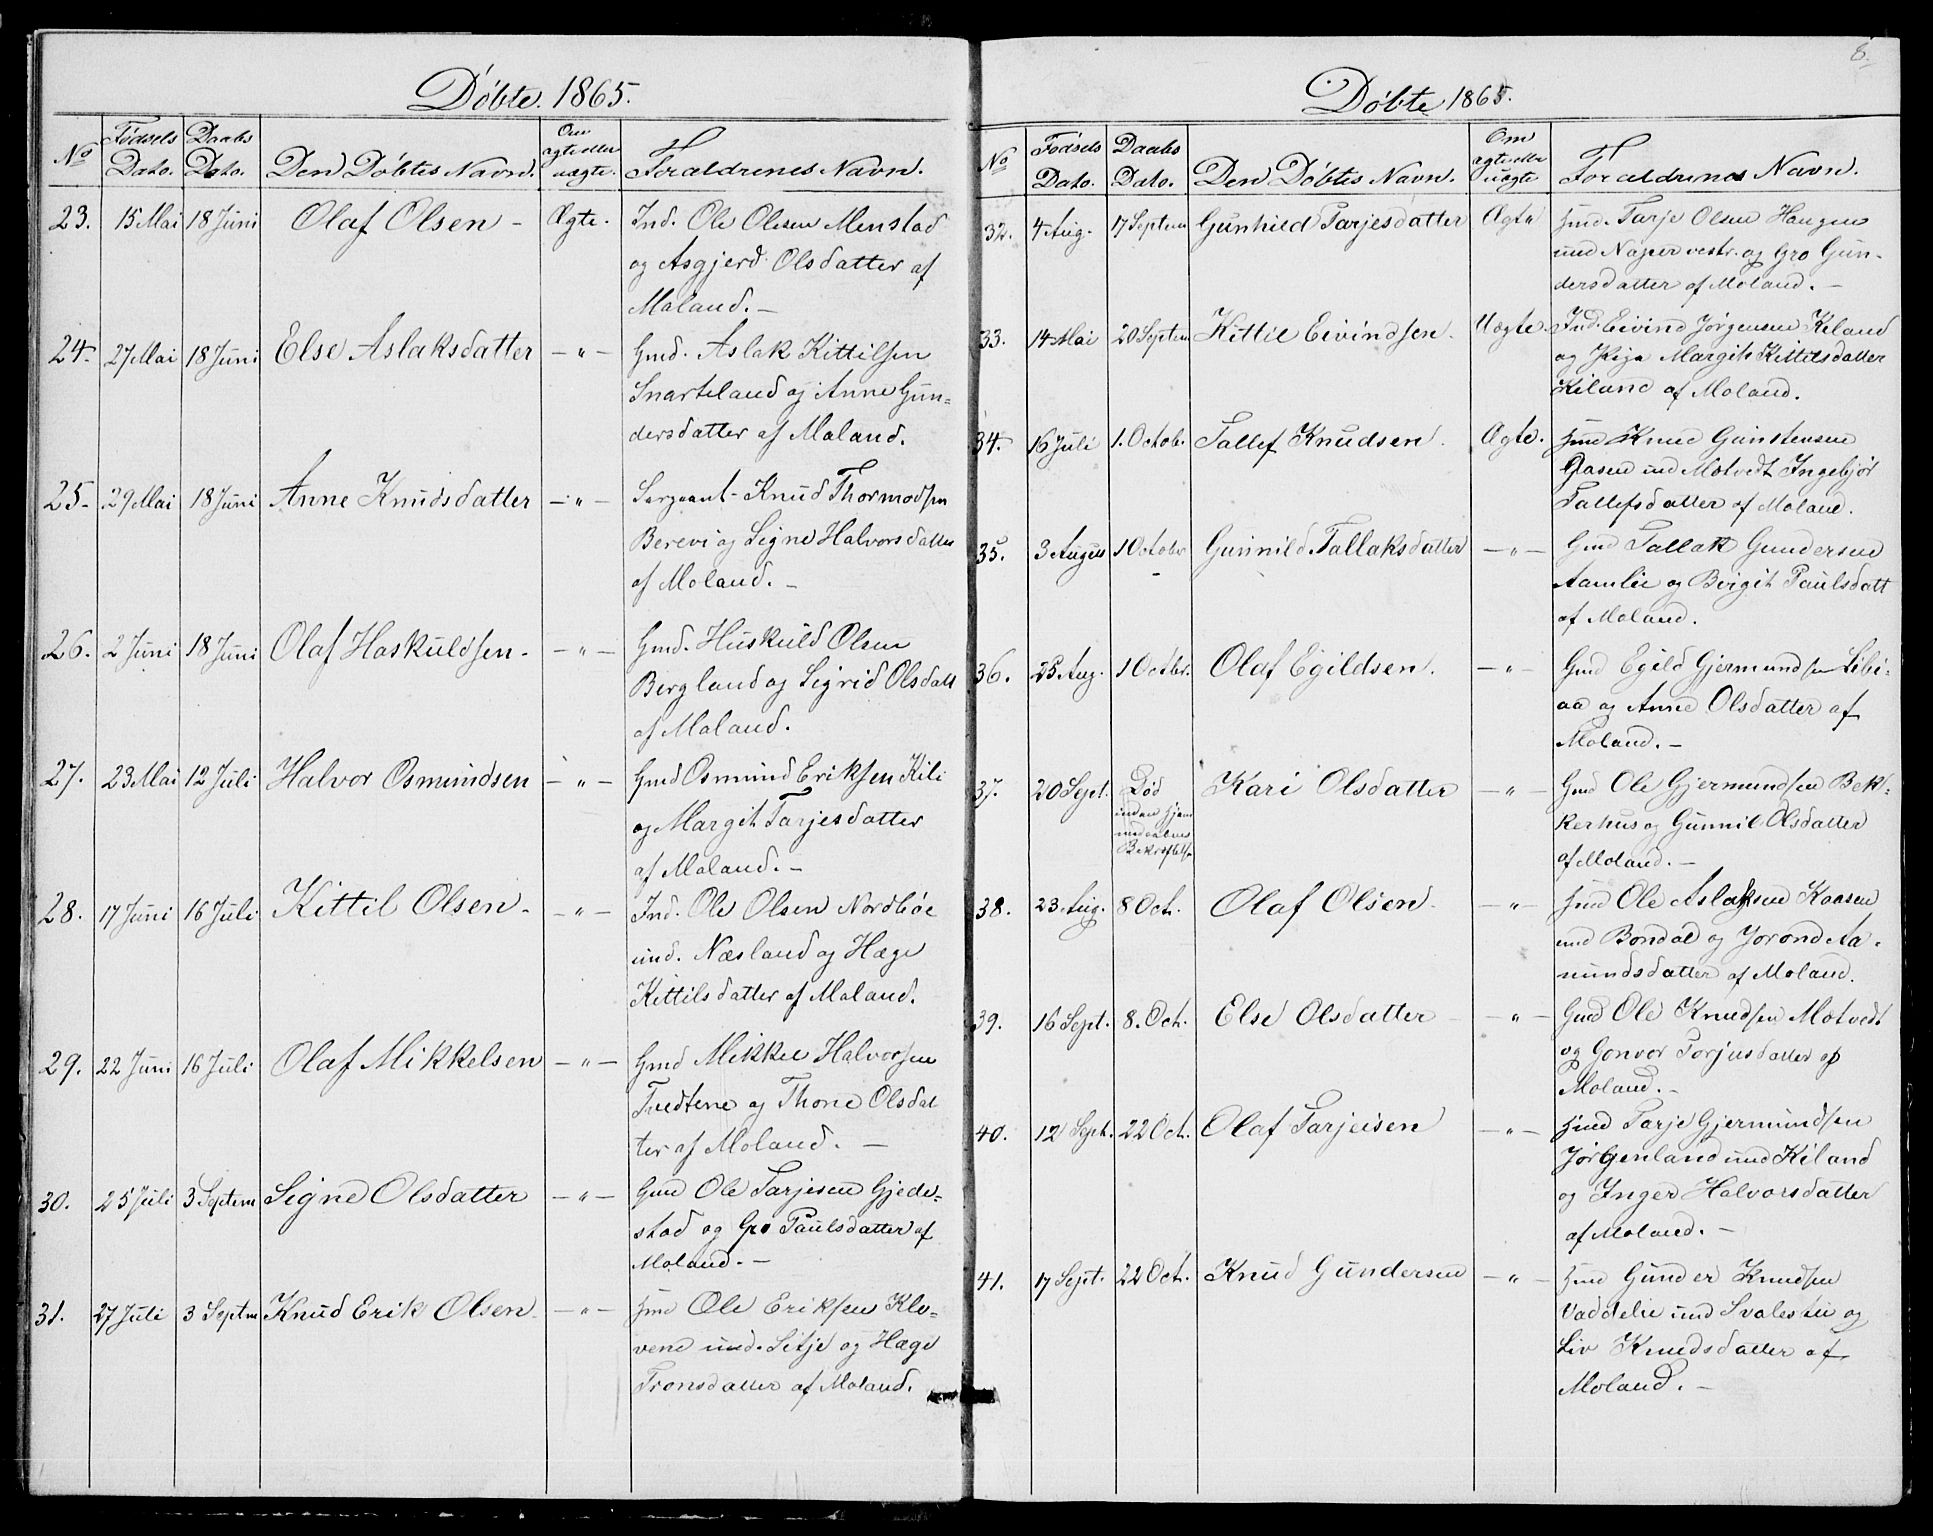 Döbte. 1865.
No Fødsels Dato. Daabs Dato. Den Döbtes Navn. Om ægte eller uægte. Forældrenes Navn.
23. 15 Mai 18 Juni Olaf Olsen - Ægte. Ind. Ole Olesen Menstad
og Asgjerd Olsdatter af
Moland. -
24. 27 Mai 18 Juni Else Aslaksdatter - " - Gmd. Aslak Kittilsen
Snarteland og Anne Gun-
dersdatter af Moland.
25. 29 Mai 18 Juni Anne Knudsdatter - " - Sergeant - Knud Thormodsen
Berevi og Signe Halvorsdatter
af Moland. -
26. 2 Juni 18 Juni Olaf Haskuldsen - - " - Gmd. Huskuld Olsen
Bergland og Sigrid Olsdatt
af Moland.
27. 23 Mai 12 Juli Halvor Osmundsen - " - Gmd Osmund Eriksen Kili
og Margit Tarjesdatter
af Moland. -
28. 17 Juni 16 Juli Kittil Olsen - - " - Ind. Ole Olsen Nordböe
und. Næsland og Hæge
Kittilsdatter af Moland.
29. 22 Juni 16 Juli Olaf Mikkelsen - " - Gmd Mikkel Halvorsen
Tvedtene og Thone Olsdat
ter af Moland. -
30. 25 Juli 3 Septem Signe Olsdatter - " - Gmd Ole Tarjesen Gjede-
stad og Gro Paulsdatter af
Moland. -
31. 27 Juli 3 Septm Knud Erik Olsen - - " - Hmd Ole Eriksen Klo-
vene und. Sitje og Hæge
Tronsdatter af Moland.
8.
Döbte 1865.
No Fødsels Dato. Daabs Dato. Den Döbtes Navn. Om ægte eller uægte Forældrenes Navn.
32. 4 Aug. 17 Septem Gunhild Tarjesdatter Ægte Hmd. Tarje Olsen Haugen
und Naper vestr. og Gro Gun-
dersdatter af Moland. -
33. 14 Mai 20 Septem Kittil Eivindsen. Uægte. Ind. Eivind Jörgensen Kiland
og Pige Margit Kittilsdatter
Kiland af Moland.
34. 16 Juli 1. Octob. Tallef Knudsen. Ægte. Hmd Knud Gunstensen
und Motvedt Ingebjör
Tallefsdatter af Moland.
35. 3 Augus 1 Octobr Gunnild Tallaksdatter - " - Gmd Tallak Gundersen
Aamlie og Birgit Paulsdatt
af Moland.
36. 1 Octbr. Olaf Egildsen. - " - Gmd Egild Gjermundsen Libi-
aa og Anne Olsdatter af
Moland. -
37. 20 Sept. Död
inden Hjem
medaabens
Bekræftelse Kari Olsdatter - " - Gmd Ole Gjermundsen Bek-
kerhus og Gunnil Olsdatter
af Moland. -
38. 23 Aug. 8 Oct. Olaf Olsen - " - Hmd Ole Aslaksen Kaasen
und Bondal og Jorond Aa-
mundsdatter af Moland.
39. 16 Sept. 8. Oct. Else Olsdatter - " - Gmd Ole Knudsen Motvedt
og Gonvor Torjusdatter af
Moland. -
40. 12 Sept. 22 Oct. Olaf Tarjeisen - " - Hmd Tarje Gjermundsen
Jörgenland und Kiland
og Inger Halvorsdatter
af Moland. -
41. 17 Sept. 22 Oct. Knud Gundersen - " - Hmd Gunder Knudsen
Vaddelie und Svalestu og
Liv Knudsdatter af
Moland. -